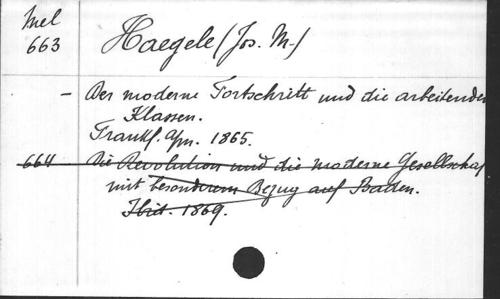 Mel
663
Haegele (Jos. M.)
- Der moderne Fortschritt und die arbeitenden
Klassen.
Frankf. a/m. 1865.
664 Die Revolution und die moderne Gesellschaf
mit besonderem Bezug auf Baden.
Ibid. 1869.